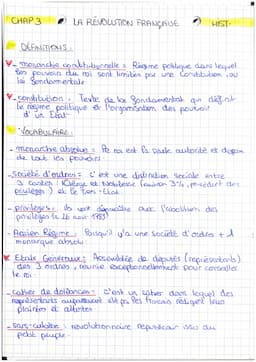 CHAP 3 LA RÉVOLUTION FRANÇAISE HIST.
DÉFINITIONS :
- monarchie constitutionnelle : Régime politique dans lequel
les pouvoirs du roi sont limités par une Constitution ou
loi Fondamentale.
- constitution : Texte de loi Fondamental qui définit
le régime politique et l'organisation des pouvoirs
d'un Etat
VOCABULAIRE :
- monarchie absolue : le roi est la seule autorité et dispose
de tout les pouvoirs
- société d'ordres : c'est une distinction sociale entre
3 ordres : Clergé et Noblesse (environ 3%, possédant des
privilèges) et le Tiers-Etat
- privilèges : ils vont disparaître avec l'abolition des
privilèges le 1789
- Ancien Régime : Puisqu'il y'a une société d'ordres + 1
monarque absolu
Etats Généraux : Assemblée de députés (représentants)
des 3 ordres, réunie exceptionnellement pour conseiller
le roi
- cahier de doléances : c'est un cahier dans lequel des
représentants français rédigent leurs
plaintes et attentes
- sans-culotte : révolutionnaire républicain issu du
petit peuple